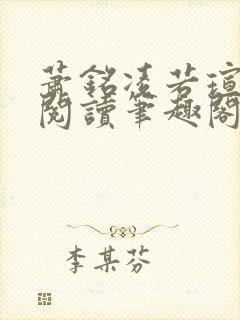 萧銘凌若瑄
閱讀筆趣閣
李某芬